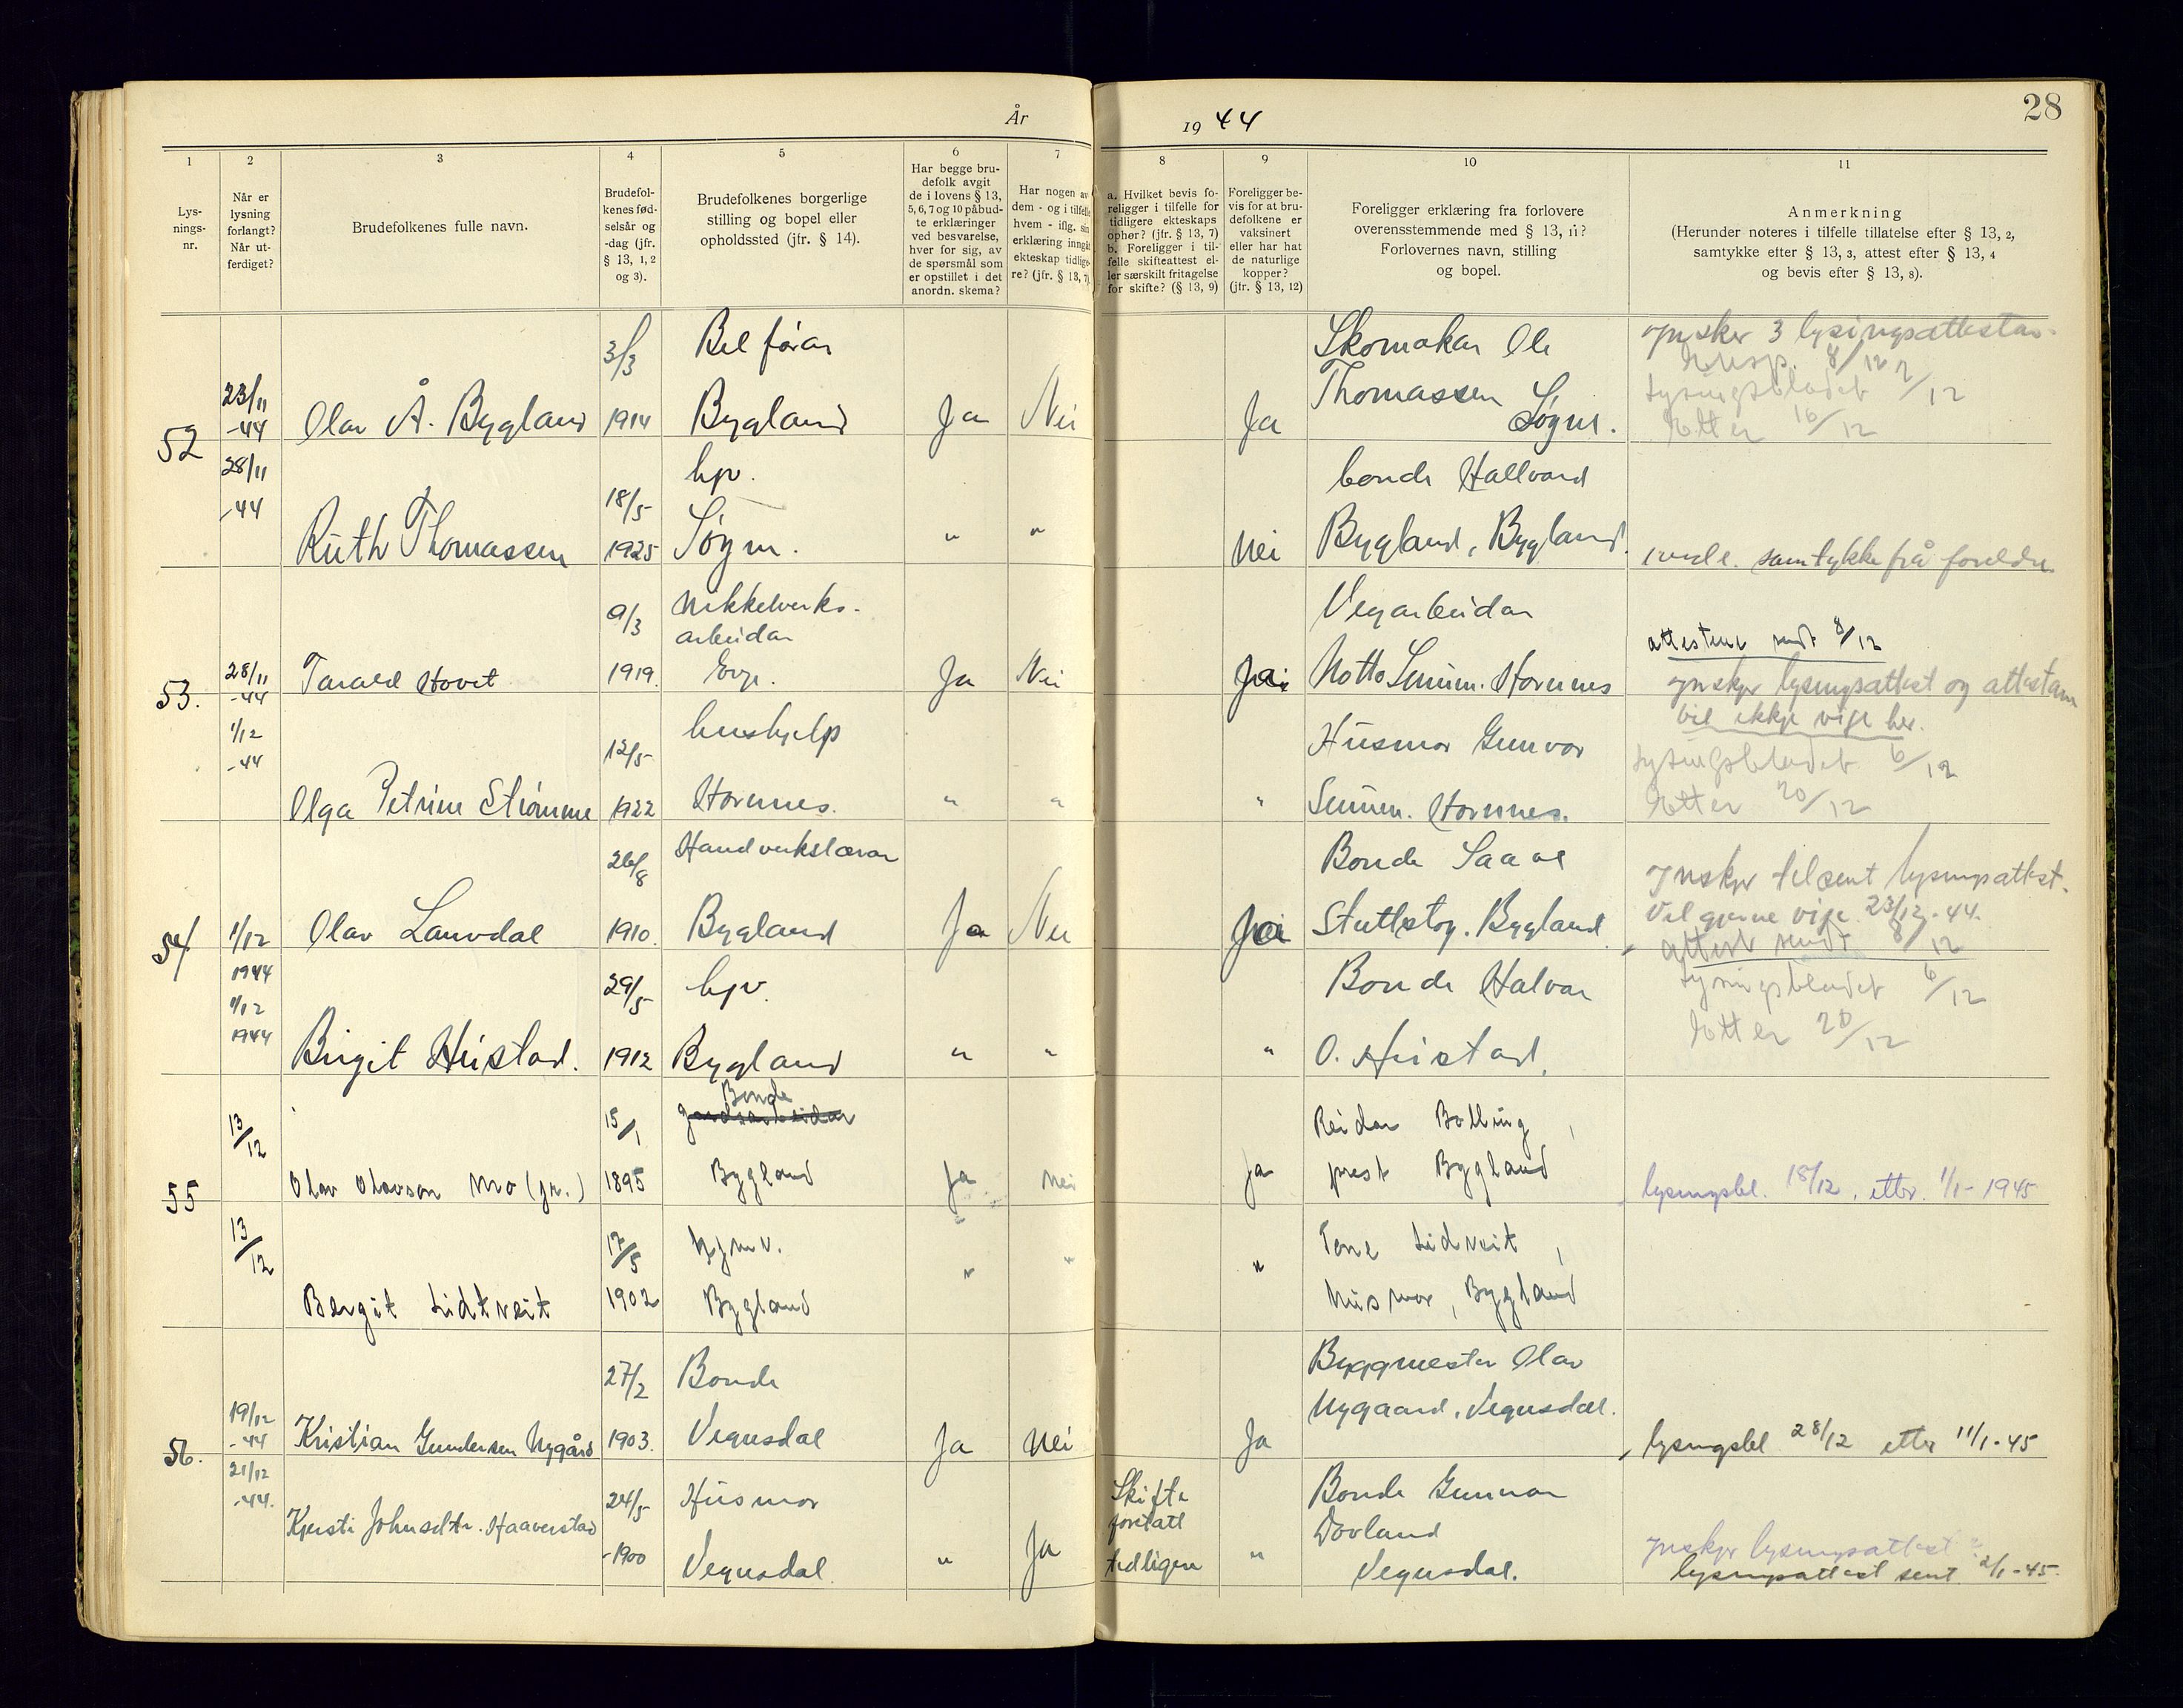 28
År
19 44
1
2
3
4
5
6
7
8
9
10
11
Lys-
nings-
nr.
Når er
lysning
forlangt?
Når ut-
ferdiget?
Brudefolkenes fulle navn.
Brudefol-
kenes fød-
selsår og
-dag (jfr.
§ 13, 1, 2
og 3).
Brudefolkenes borgerlige
stilling og bopel eller
opholdssted (jfr. § 14).
Har begge bru-
defolk avgit
de i lovens § 13,
5, 6, 7 og 10 påbud-
te erklæringer
ved besvarelse,
hver for sig, av
de spørsmål som
er opstillet i det
anordn. skema?
Har nogen av
dem - og i tilfelle
hvem - iflg. sin
erklæring inngått
ekteskap tidlige-
re? (jfr. § 13, 7)
a. Hvilket bevis fo-
religger i tilfelle for
tidligere ekteskaps
ophør? (jfr. § 13, 7)
b. Foreligger i til-
felle skifteattest el-
ler særskilt fritagelse
for skifte? (§ 13, 9)
Foreligger be-
vis for at bru-
defolkene er
vaksinert
eller har hat
de naturlige
kopper?
(jfr. § 13, 12)
Foreligger erklæring fra forlovere
overensstemmende med § 13, 11?
Forlovernes navn, stilling
og bopel.
Anmerkning
(Herunder noteres i tilfelle tillatelse efter § 13, 2,
samtykke efter § 13, 3, attest efter § 13, 4
og bevis efter § 13, 8).
52
23/11
-44
Olav Å. Bygland
3/3
1914
Bilførar
Bygland
Ja
Nei
Ja
Skomakar Ole
Thomassen
Søgne.
ynsker 3 lysingsattestar.
8/12
Lysingsbladet 2/12
Etter 16/12
28/11
-44
Ruth Thomassen
18/5
1925
hpv.
Søgne.
"
"
Nei
bonde Hallvard
Bygland, Bygland.
samtykke frå foreldre.
53.
28/11
-44
Tarald Hovet
9/3
1919.
Nikkelverks-
arbeidar
Evje.
Ja
Nei
Ja
Vegarbeidar
Notto Senum. Hornnes
attestene sendt 8/12
ynskjer lysingsattest og attestane
vil ikkje vige her.
Lysingsbladet 6/12
Etter 20/12
1/12
-44
Olga Petrine Strømme
12/5
1922
hushjelp
Hornnes.
"
"
"
Husmor Gunvor
Senum. Hornnes.
54
1/12
1944
Olav Lauvdal
26/8
1910.
Handverkslærar
Bygland
Ja
Nei
Ja
Bonde
Bygland
Ynskjer tilsent lysingsattest.
Vil gjerne vige 23/12-44.
attest sendt 8/12
Lysingsbladet 6/12
Etter 20/12
1/12
1944
Birgit Heistad.
29/5
1912
hpv.
Bygland
"
"
"
Bonde Halvar
O. Heistad.
55
13/12
Olav Olavson Mo (jr.)
15/1
1895
Bonde
gardsarbeidar
Bygland
Ja
Nei
Ja
Reidar Bolling,
prest Bygland
lysingsbl. 18/12, etter. 1/1-1945
13/12
Bergit Lidtveit
17/5
1902
Bygland
"
"
"
Tone Lidtveit,
Husmor, Bygland
56.
19/12
-44
Kristian Gundersen Nygård
27/2
1903.
Bonde
Vegusdal
Ja
Nei
Ja
Byggmester Olav
Nygaard, Vegusdal.
lysingsbl 28/12 etter 11/1-45
21/12
-44.
Kjersti Johnsdtr. Haaverstad
24/5
-1900
Husmor
Vegusdal
"
Ja
Skifte
foretatt
tidligere
"
Bonde Gunnar
Dovland
Vegusdal.
ynskjer lysingsattest
lysingsattest sent 2/1-45.